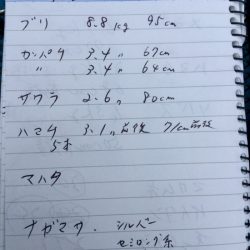 ブリ 8.8kg 95cm
カンパチ 3.4〃 67cm
〃 3.4〃 64cm
サワラ 2.6〃 80cm
ハマチ 3.1〃前後 71cm前後
5本
マハタ
ナガマサ.シルバー
セミロング系